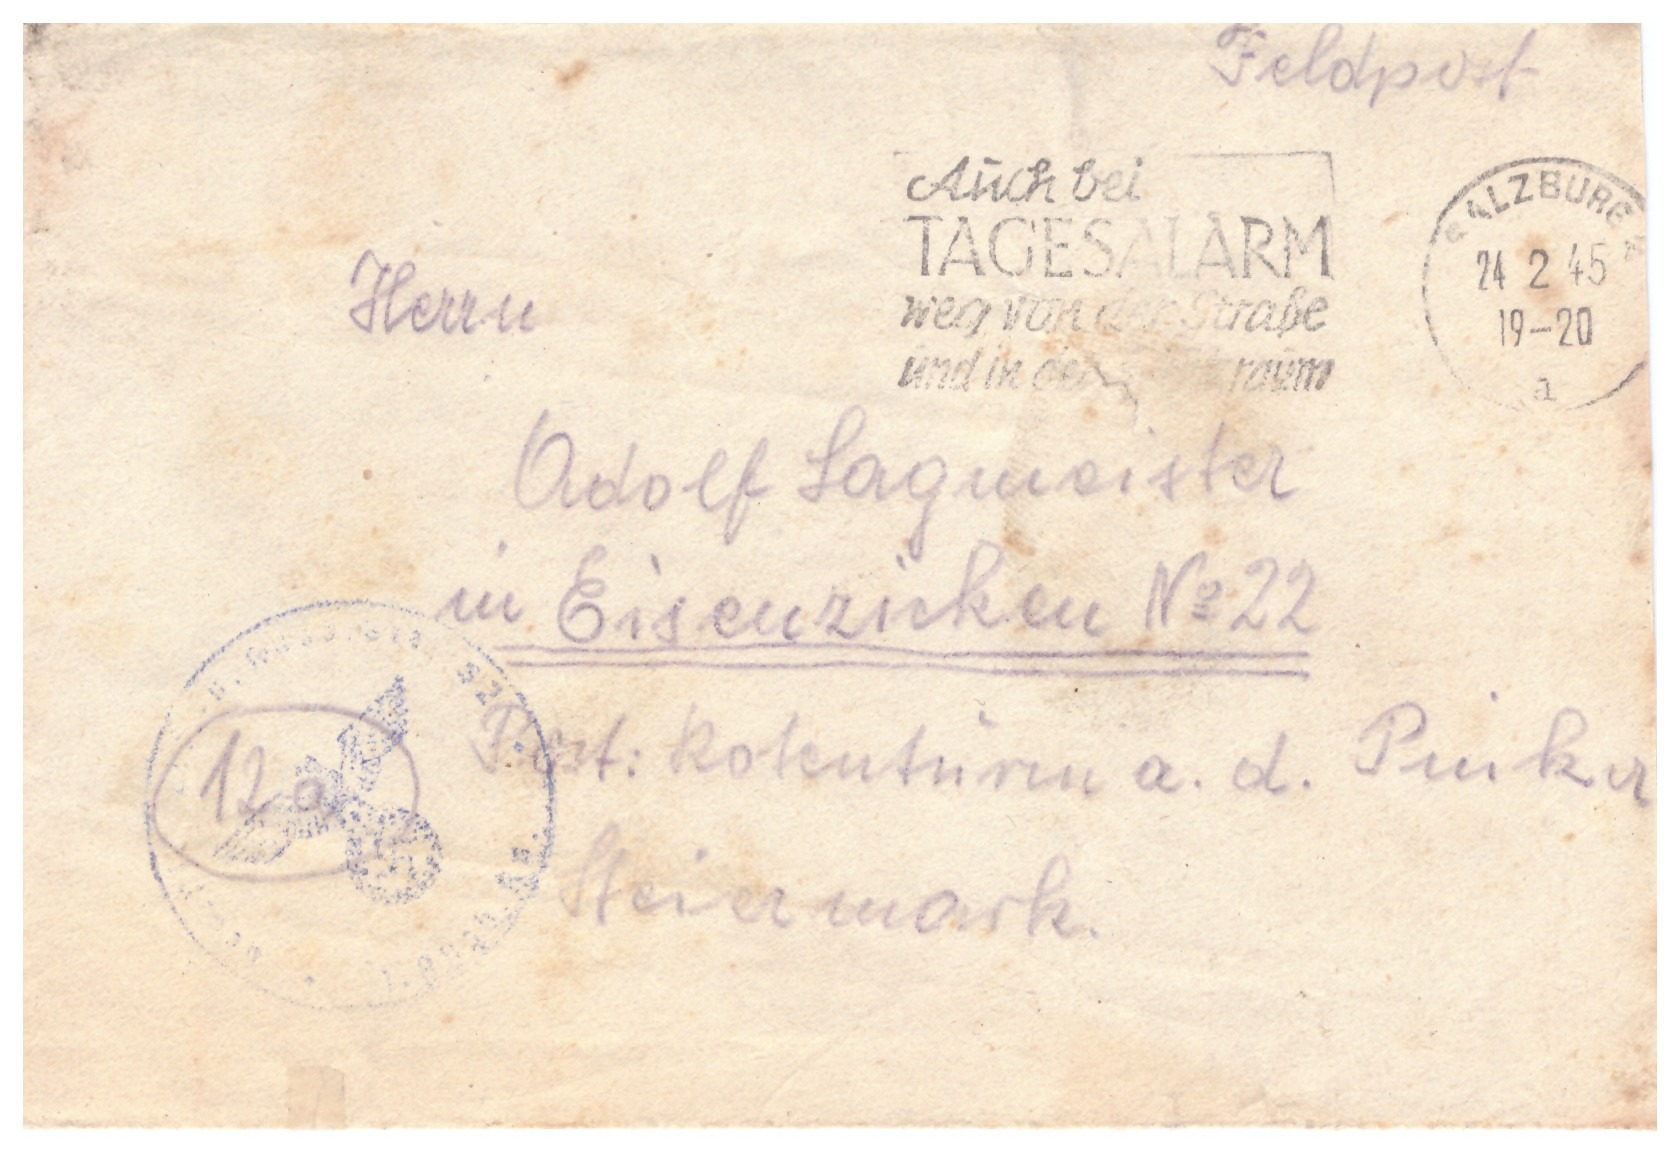 Feldpost
Auch bei
TAGESALARM
weg von der Straße
und in den raum
SALZBURG 2
24 2 45
19-20
a
Herrn
Adolf Sagmeister
in Eisenzicken No 22
Post: Rotenturm a. d. Pinka
12a
Steiermark.